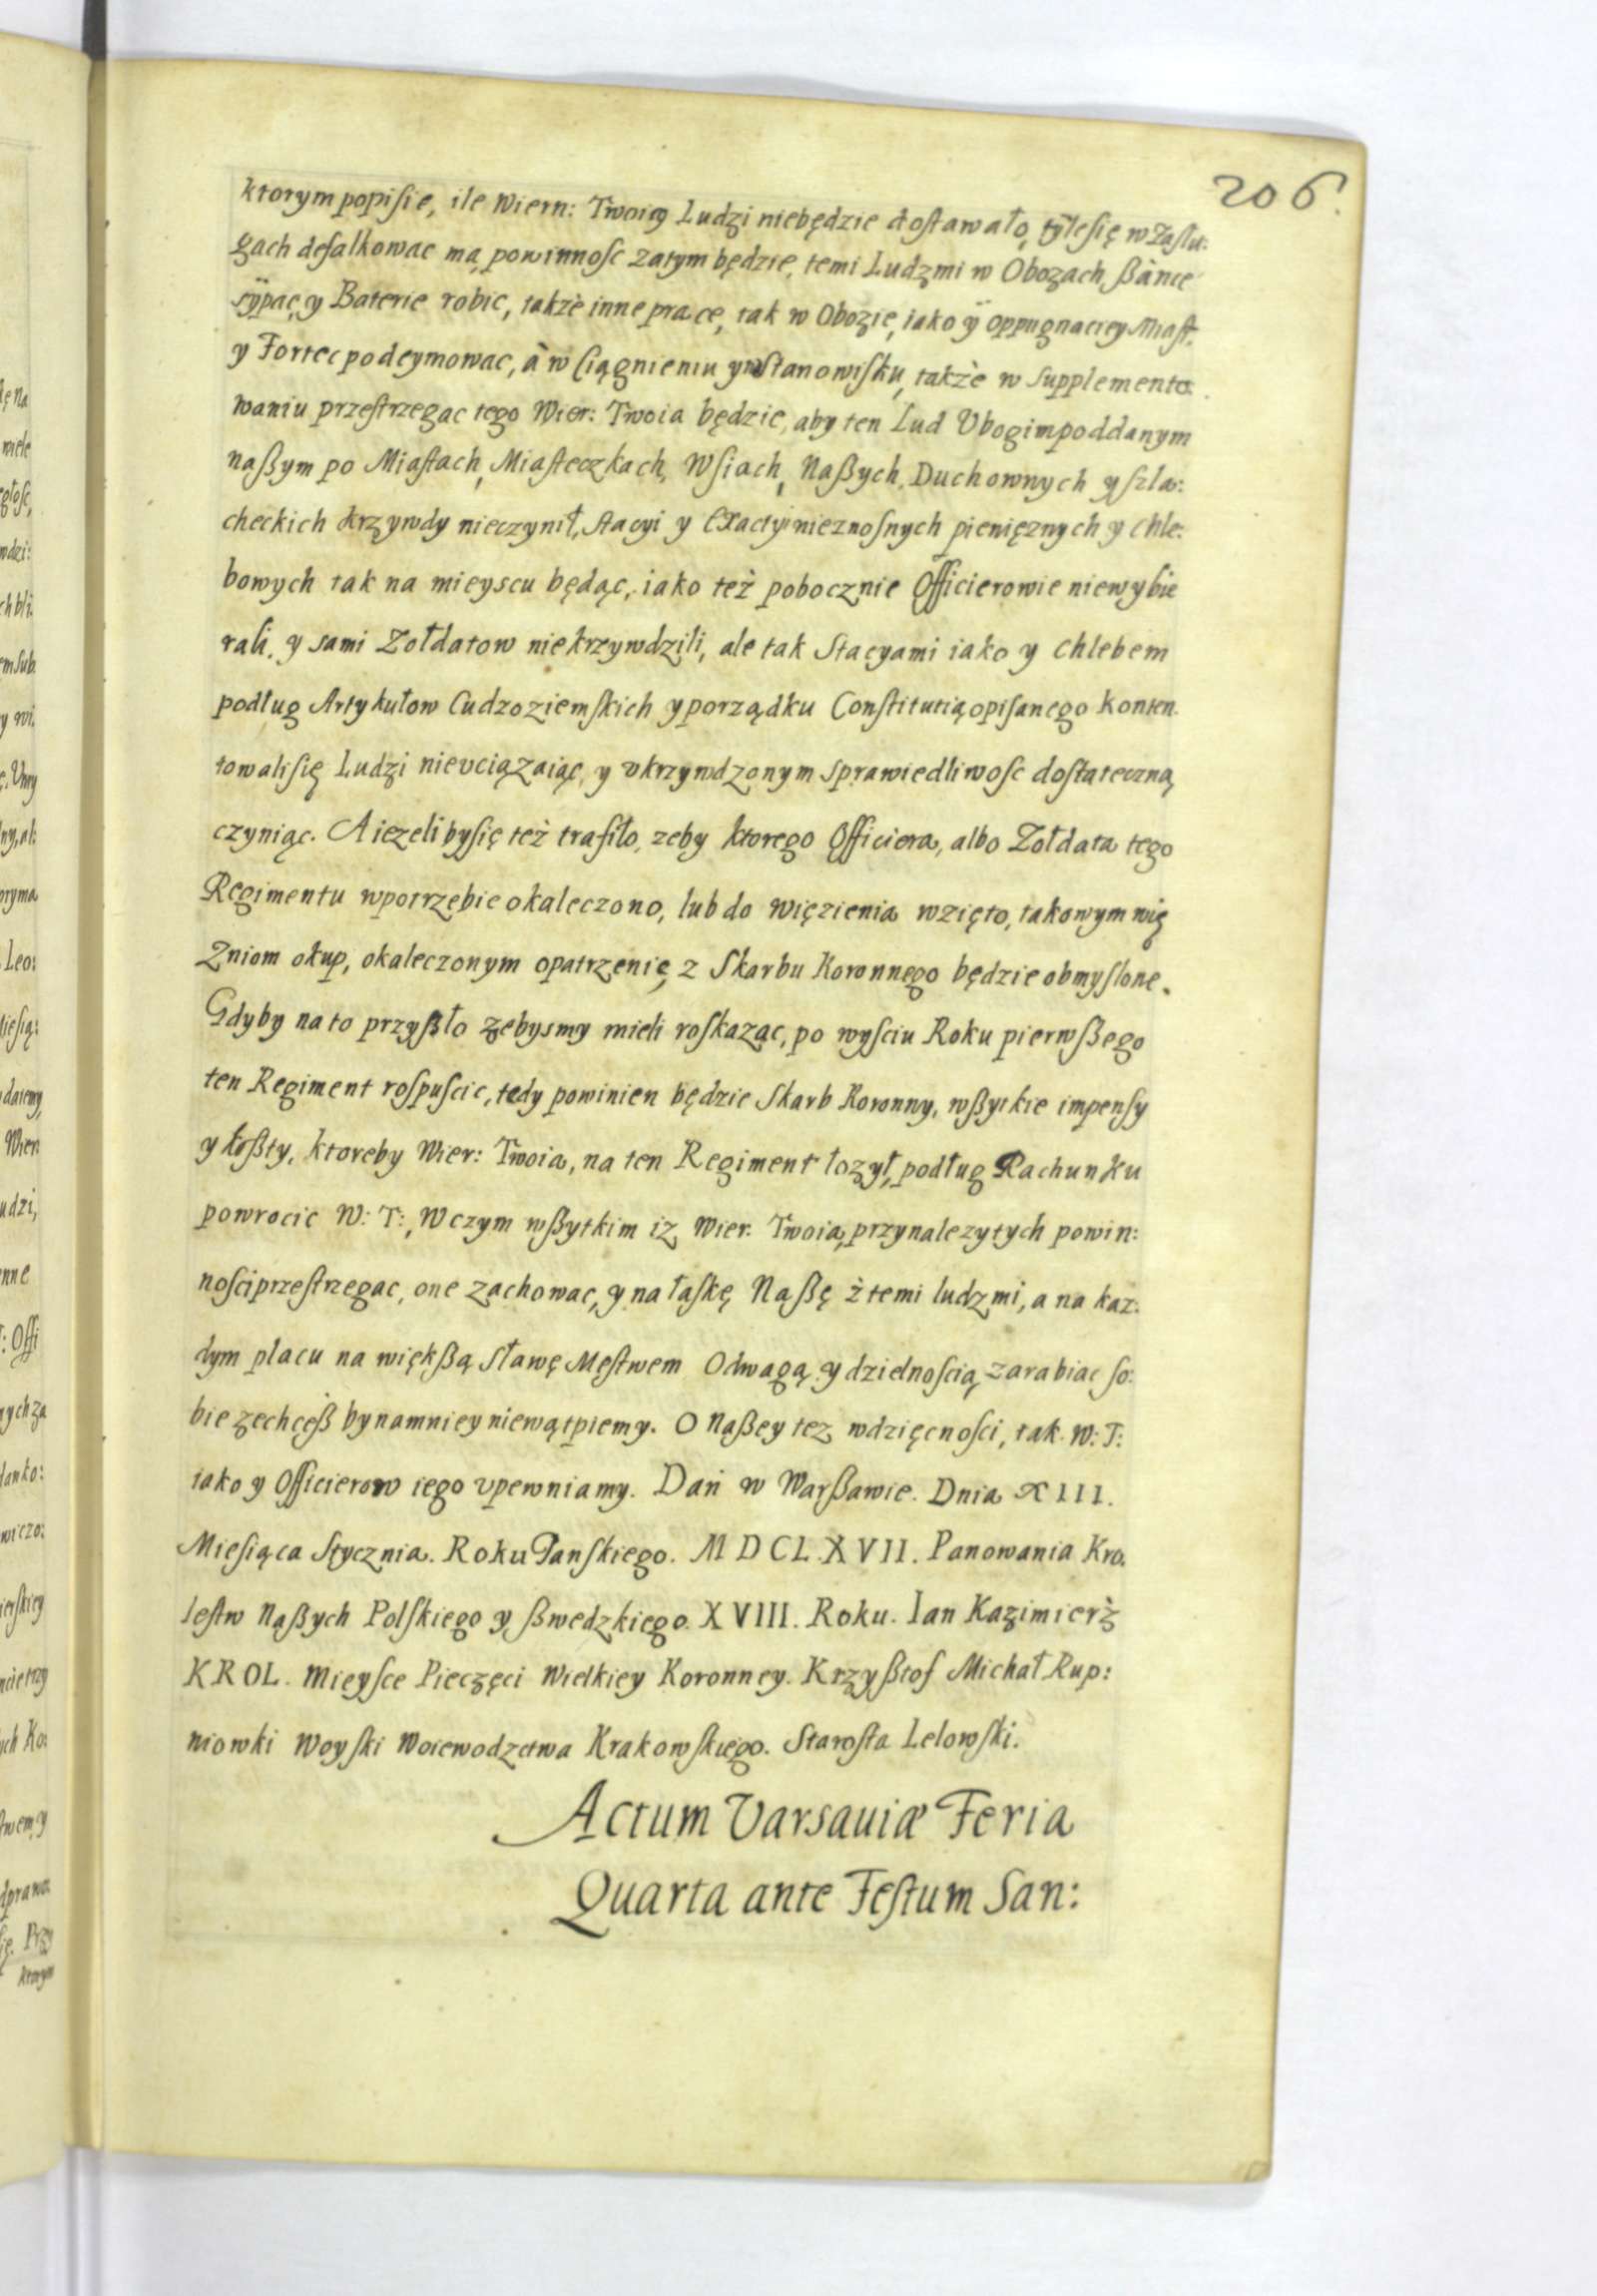 206.
ktorym popisie, ile Wiern: Twoiey Ludzi niebędzie dostawało, tÿlesię w Zasłu:
gach defalkowac ma, powinnosc zatym będzie, temi Ludzmi w Obozach, ßànce
sÿpac, y Baterie robic, takzè inne prace, tak w Obozie, iako ÿ oppugnaciey Miast.
y Fortec podeymowac, à w Ciągnieniu y w stanowisku, takzè w supplemento:
waniu przestrzegac tego Wier: Twoia będzie, aby ten Lud Vbogim poddanym
naßym po Miastach, Miasteczkach, Wsiach, Naßych, Duchownych y szla:
checkich krzywdy nieczynił, stacyi y Exactyi nieznosnych pienięznych y chle:
bowych tak na mieyscu będąc, iako też pobocznie Officierowie niewybie
rali. y sami Zołdatow niekrzywdzili, ale tak Stacyami iako y chlebem
podług Artykułow Cudzoziemskich y porządku Constitutią opisanego konten.
towali się Ludzi nieuciązaiąc, y vkrzywdzonym sprawiedliwosc dostateczną
czyniąc. A iezeli bysię też trafiło, zeby ktorego Officiera, albo Zołdata tego
Regimentu wpotrzebie okaleczono, lub do więzienia wzięto, takowym wię
Zniom okup, okaleczonym opatrzenie, z Skarbu Koronnego będzie obmyslone.
Gdyby na to przyßło zebysmy mieli roskazac, po wysciu Roku pierwßego
ten Regiment rospuscic, tedy powinien będzie Skarb Koronny, wßytkie impensy
y koßty, ktoreby Wier: Twoia, na ten Regiment łozył, podług Rachunku
powrocic W: T:, W czym wßytkim iz Wier. Twoia, przynalezytych powin:
nosci przestrzegac, one zachowac, y na łaskę Naßę ż temi ludzmi, a na kaz:
dym placu na więkßą Sławę Męstwem Odwagą y dzielnoscią zarabiac so:
bie zechceß bynamniey niewątpiemy. O Naßey tez wdzięcnosci, tak W: T:
iako y Officierow iego vpewniamy. Dań w Warßawie. Dnia XIII.
Miesiąca Stycznia. Roku Panskiego. MDCLXVII. Panowania Kro.
lestw Naßych Polskiego y ßwedzkiego. XVIII. Roku. Ian Kazimierż
KROL. Mieysce Pieczęci Wielkiey Koronney. Krzyßtof Michał Rup:
niowki Woyski Woiewodzctwa Krakowskiego. Starosta Lelowski.
Actum Varsauiæ Feria
Quarta ante Festum San: